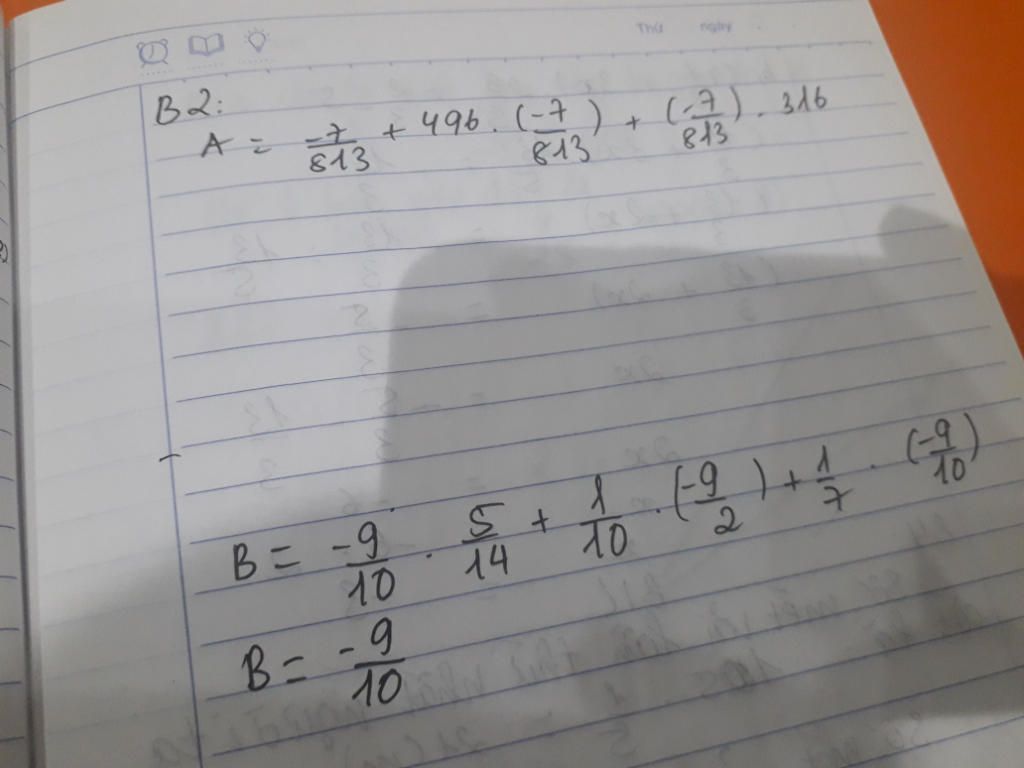 Thứ ngày
B2:
A = -7/813 + 496 . (-7/813) + (-7/813) . 316
B = -9/10 . 5/14 + 1/10 . (-9/2) + 1/7 . (-9/10)
B = -9/10